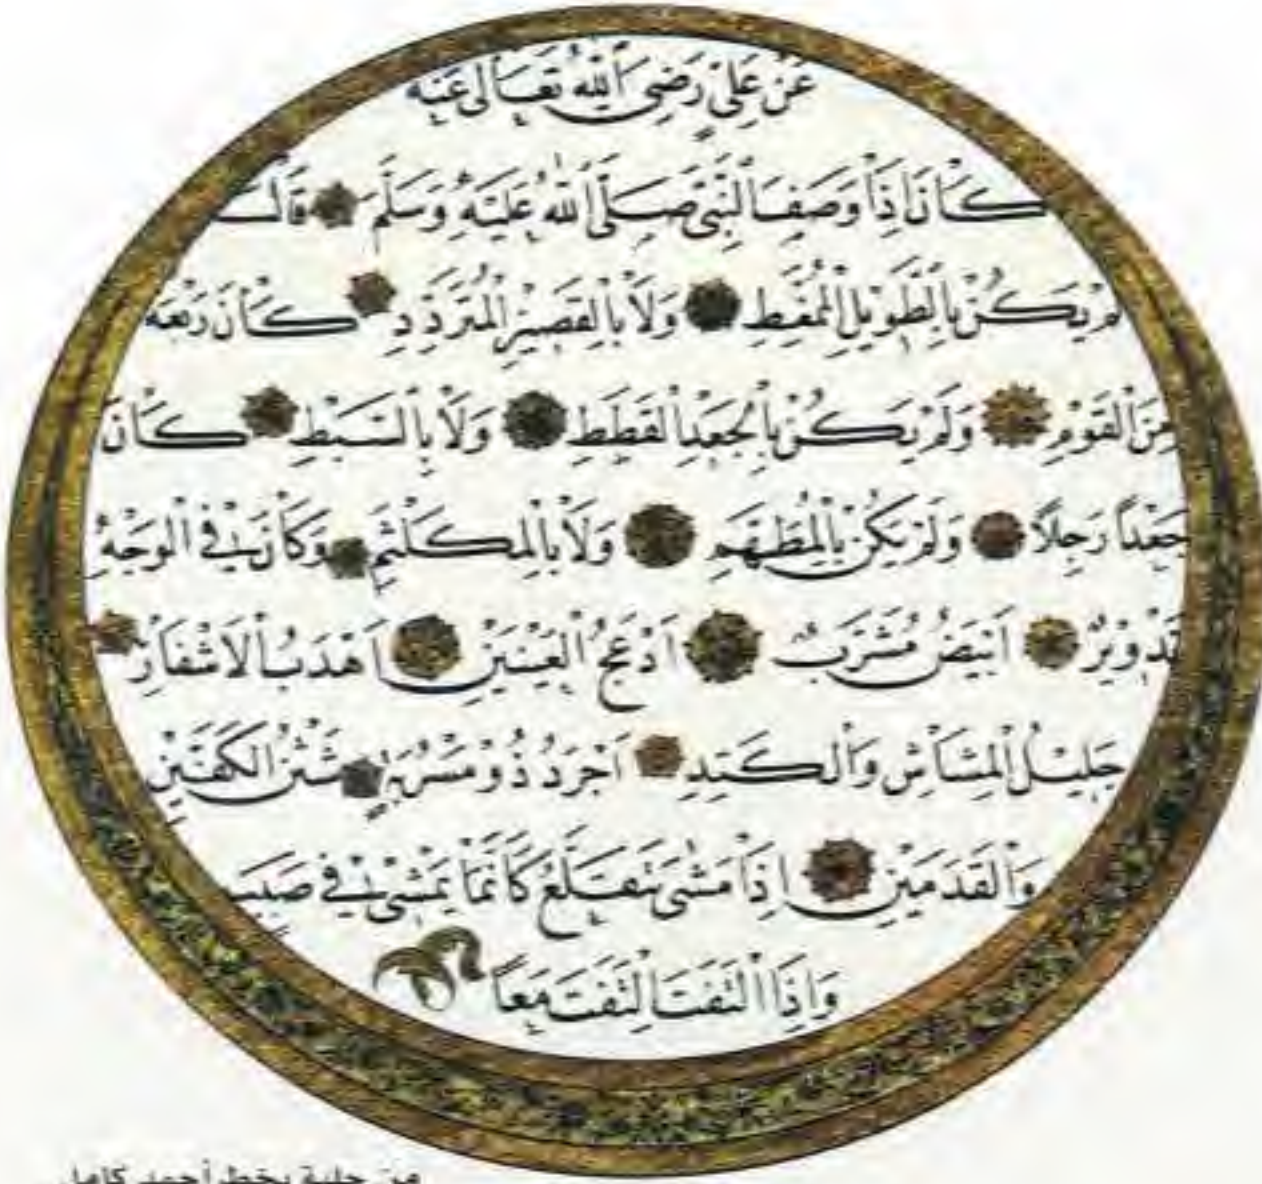 عَنْ عَلِيٍّ رَضِيَ اللهُ تَعَالَى عَنْهُ
كَانَ إِذَا وَصَفَ النَّبِيَّ صَلَّى اللهُ عَلَيْهِ وَسَلَّمَ قَالَ
لَمْ يَكُنْ بِالطَّوِيلِ الْمُمَّغِطِ وَلَا بِالْقَصِيرِ الْمُتَرَدِّدِ كَانَ رَبْعَةً
مِنَ الْقَوْمِ وَلَمْ يَكُنْ بِالْجَعْدِ الْقَطَطِ وَلَا بِالسَّبْطِ كَانَ
جَعْدًا رَجِلًا وَلَمْ يَكُنْ بِالْمُطَهَّمِ وَلَا بِالْمُكَلْثَمِ وَكَانَ فِي الْوَجْهِ
تَدْوِيرٌ اَبْيَضُ مُشْرَبٌ اَدْعَجُ الْعَيْنَيْنِ اَهْدَبُ الْاَشْفَارِ
جَلِيلُ الْمُشَاشِ وَالْكَتَدِ اَجْرَدُ ذُو مَسْرُبَةٍ شَثْنُ الْكَفَّيْنِ
وَالْقَدَمَيْنِ اِذَا مَشَى تَقَلَّعَ كَاَنَّمَا يَمْشِي فِي صَبَبٍ
وَاِذَا الْتَفَتَ الْتَفَتَ مَعًا
من حلية بخط أحمد كامل